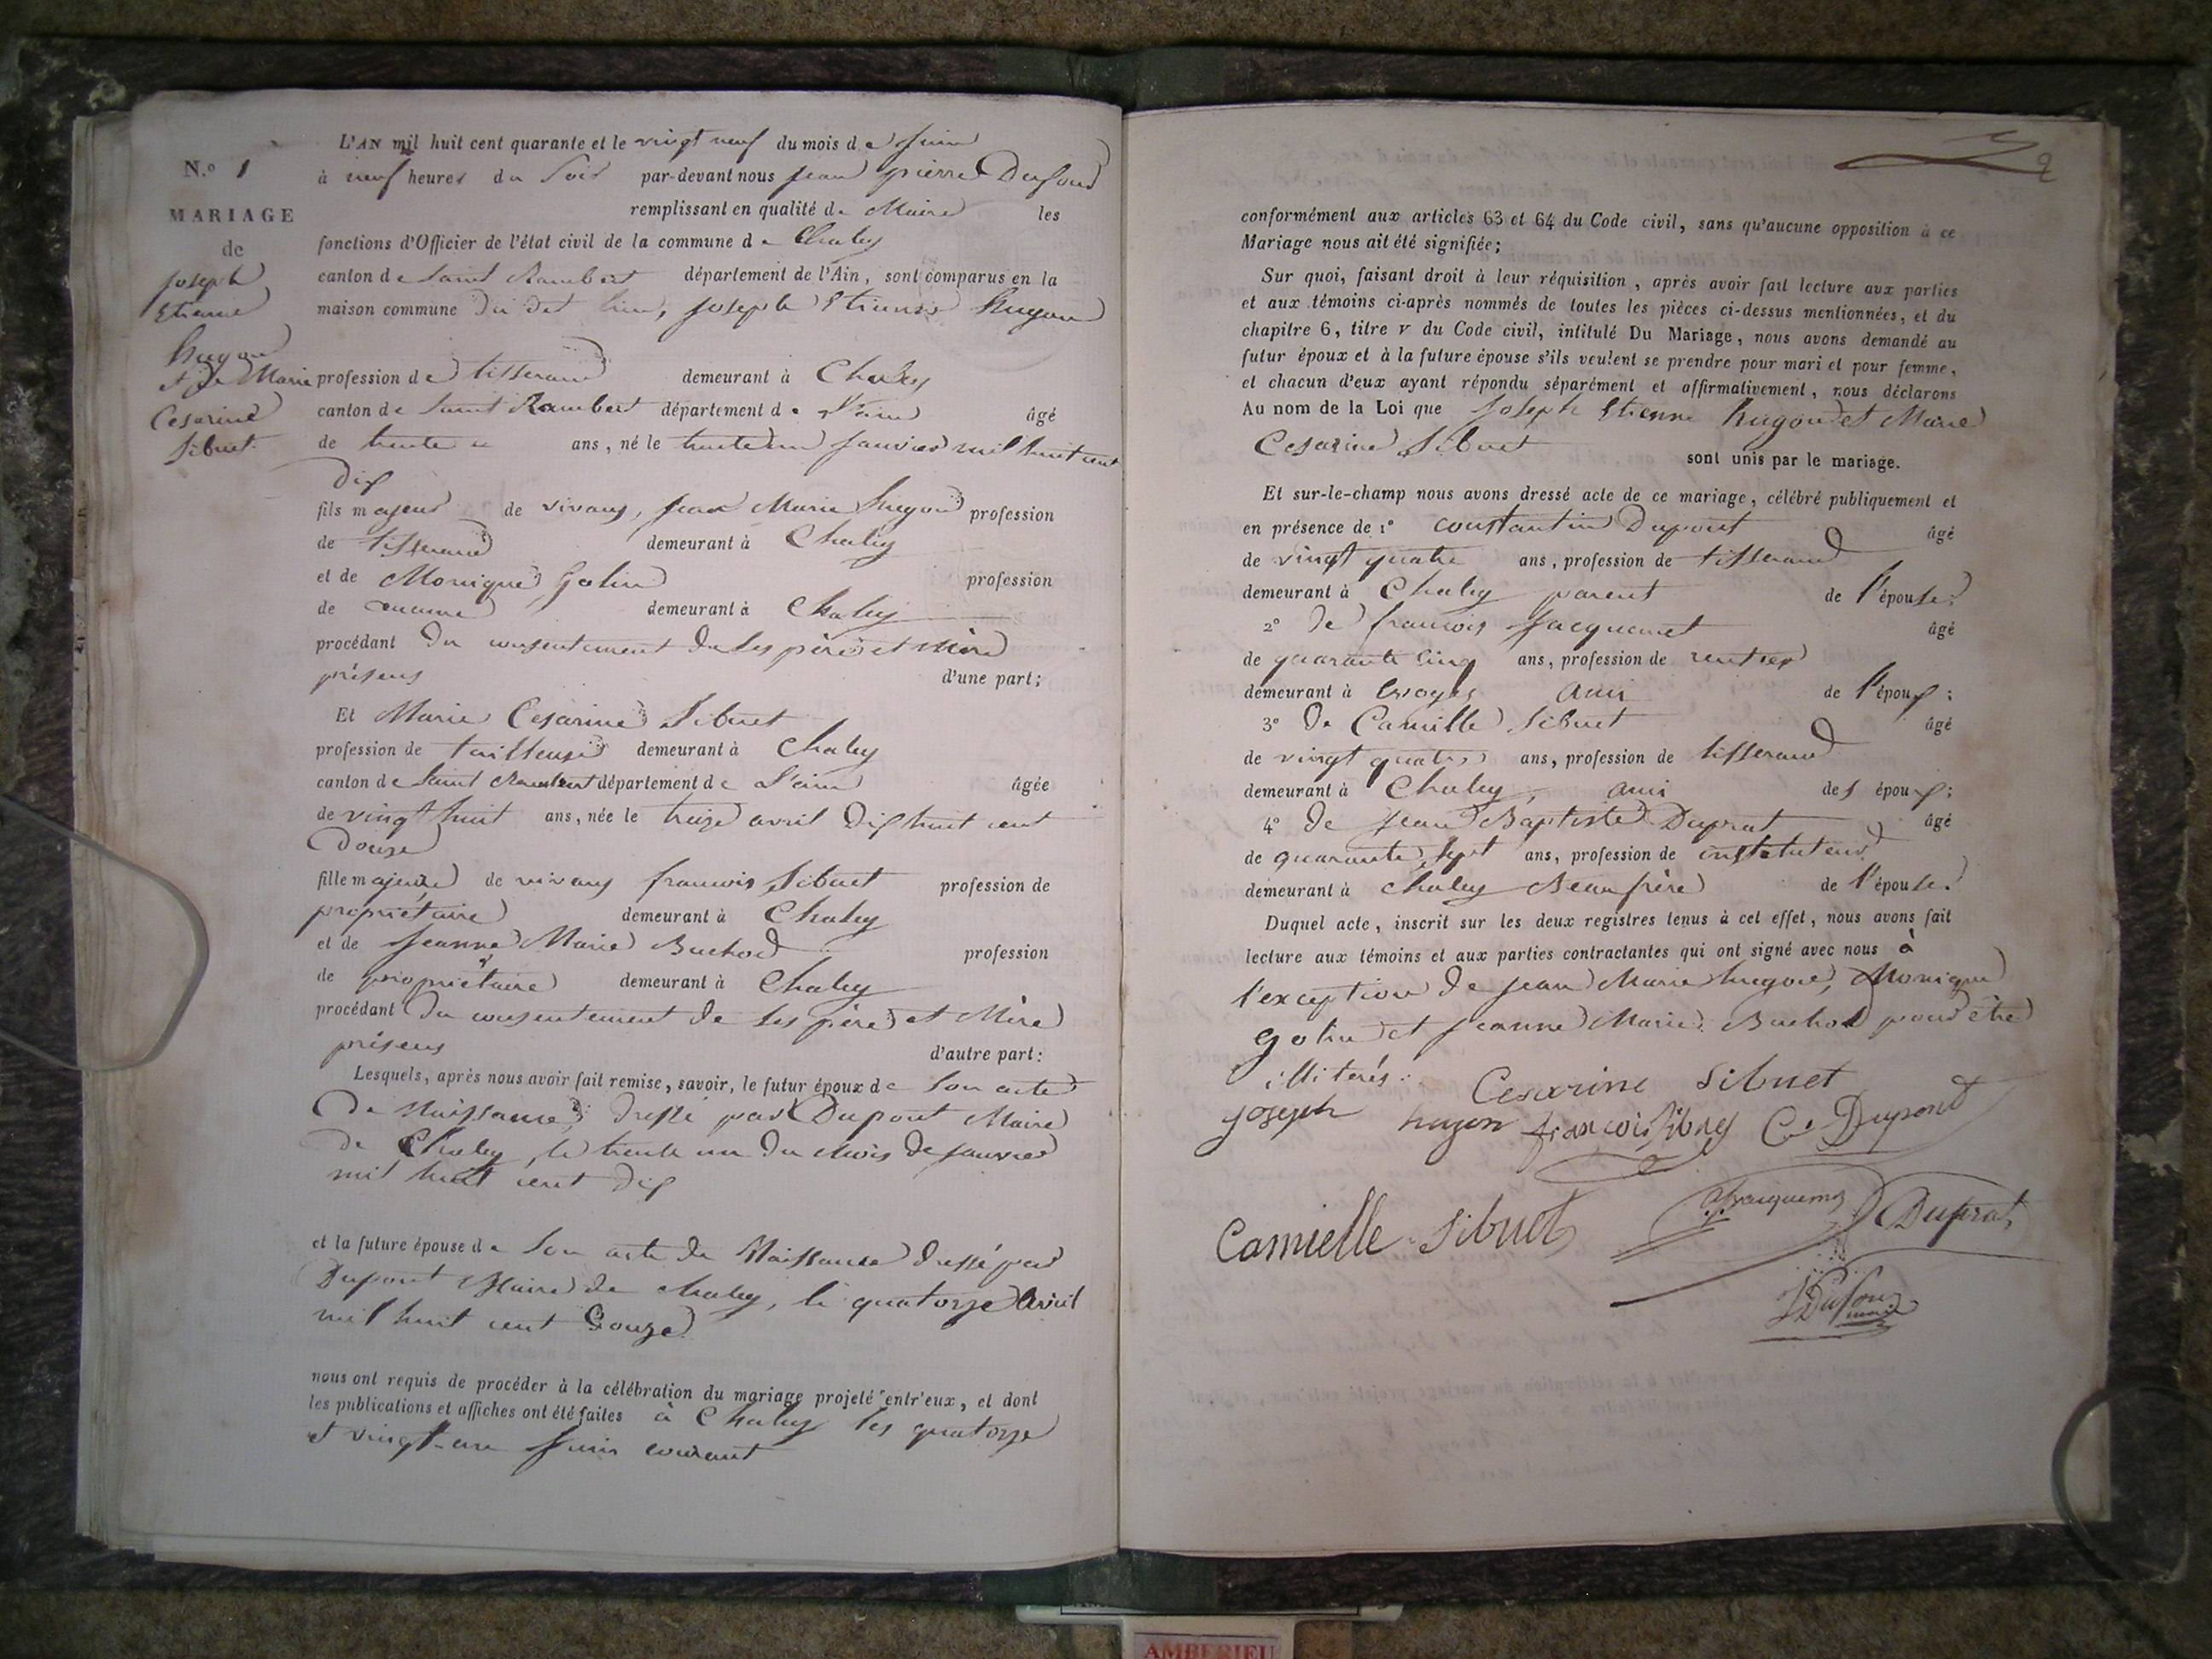 N.o 1
MARIAGE
de
Joseph
Etienne
hugon
et de Marie
Cesarine
Sibuet.
L'AN mil huit cent quarante et le vingt neuf du mois de Juin
à neuf heures du Soir par-devant nous Jean pierre Dufour
remplissant en qualité de Maire les
fonctions d'Officier de l'état civil de la commune de Chaley
canton de Saint Rambert département de l'Ain, sont comparus en la
maison commune du dit lieu, Joseph Etienne hugon
profession de tisserand demeurant à Chaley
canton de Saint Rambert département de L'ain âgé
de trente ans, né le trente un Janvier mil huit cent
dix
fils majeur de vivans, Jean Marie hugon profession
de tisserand demeurant à Chaley
et de Monique Golin profession
de aucune demeurant à Chaley
procédant du consentement de ses père et Mère
présens d'une part;
Et Marie Cesarine Sibuet
profession de tailleuse demeurant à Chaley
canton de Saint Rambert département de L'ain âgée
de vingt huit ans, née le treize avril Dix huit cent
Douze
fille majeure de vivans francois Sibuet profession de
propriétaire demeurant à Chaley
et de Jeanne Marie Buchod profession
de propriétaire demeurant à Chaley
procédant du consentement de ses père et Mère
présens d'autre part:
Lesquels, après nous avoir fait remise, savoir, le futur époux de Son acte
De Naissance, dressé par Dupont Maire
de Chaley, le trente un du Mois de Janvier
mil huit cent dix
et la future épouse de Son acte de Naissance dressé par
Dupont Maire de chaley, le quatorze Avril
mil huit cent Douze
nous ont requis de procéder à la célébration du mariage projeté entr'eux, et dont
les publications et affiches ont été faites à Chaley les quatorze
et vingt-un Juin courant
2
conformément aux articles 63 et 64 du Code civil, sans qu'aucune opposition à ce
Mariage nous ait été signifiée;
Sur quoi, faisant droit à leur réquisition, après avoir fait lecture aux parties
et aux témoins ci-après nommés de toutes les pièces ci-dessus mentionnées, et du
chapitre 6, titre v du Code civil, intitulé Du Mariage, nous avons demandé au
futur époux et à la future épouse s'ils veulent se prendre pour mari et pour femme,
et chacun d'eux ayant répondu séparément et affirmativement, nous déclarons
Au nom de la Loi que Joseph Etienne hugon et Marie
Cesarine Sibuet sont unis par le mariage.
Et sur-le-champ nous avons dressé acte de ce mariage, célébré publiquement et
en présence de 1° constantin Dupont âgé
de vingt quatre ans, profession de tisserand
demeurant à Chaley parent de l'épouse;
2° De francois Jacquemet âgé
de quarante cinq ans, profession de rentier
demeurant à ami de l'époux;
3° De Camille Sibuet âgé
de vingt quatre ans, profession de tisserand
demeurant à Chaley, ami des époux;
4° De Jean Baptiste Duprat âgé
de quarante sept ans, profession de instituteur
demeurant à chaley Beau frère de l'épouse.
Duquel acte, inscrit sur les deux registres tenus à cet effet, nous avons fait
lecture aux témoins et aux parties contractantes qui ont signé avec nous à
l'exception de Jean Marie hugon, Monique
golin et Jeanne Marie Buchod pour être
illiterés.
Cesarine Sibuet
joseph hugon francois Sibuet Ct Dupont
Camielle Sibuet Jacquemet Duprat
Dufour
maire
AMBERIEU